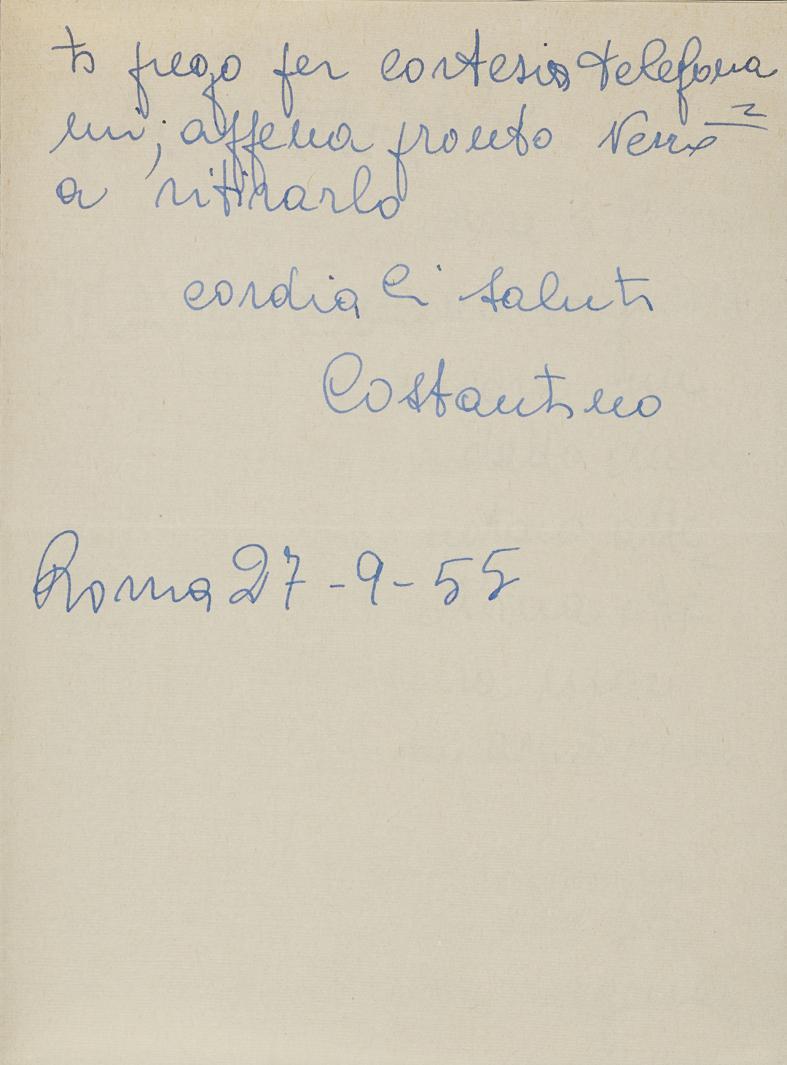 ti prego per cortesia telefona
mi, appena pronto verrò
a ritirarlo
cordiali saluti
Costantino
Roma 27-9-55